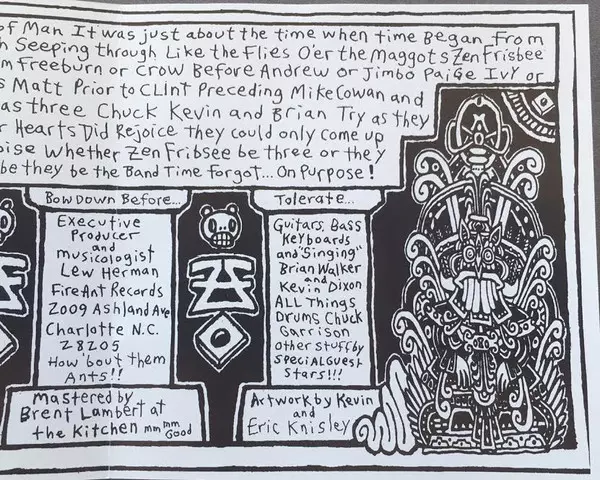 of Man It was just about the time when time Began From
h Seeping through Like the Flies O'er the Maggots Zen Frisbee
m Freeburn or Crow Before Andrew or Jimbo Paige Ivy or
s Matt Prior to CLInt Preceding Mike Cowan and
as three Chuck Kevin and Brian Try as they
r Hearts Did Rejoice they could only come up
oise Whether Zen Fribsee be three or they
be they be the Band Time Forgot... On Purpose!
Bow Down Before...
Executive
Producer
an
musicologist
Lew Herman
FireAnt Records
2009 Ashland Ave
Charlotte N.C.
28205
How 'bout them
Ants!!
Mastered by
Brent Lambert at
the Kitchen mmmm Good
Tolerate...
Guitars, Bass
Keyboards
and "Singing"
Brian Walker
and
Kevin Dixon
ALL Things
Drums Chuck
Garrison
Other stuff by
SPECIAL Guest
Stars!!!
Artwork by Kevin
and
Eric Knisley